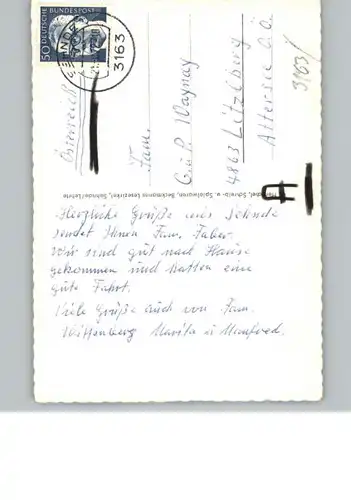 50 DEUTSCHE BUNDESPOST
3163
Österreich
Fam.
4863 Litzlberg
Attersee O.Ö.
3163/
A
Herzliche Grüße aus Sehnde
sendet Ihnen Fam. Faber.
Wir sind gut nach Hause
gekommen und hatten eine
gute Fahrt.
Viele Grüße auch von Fam.
Wittenberg Marita u Manfred.